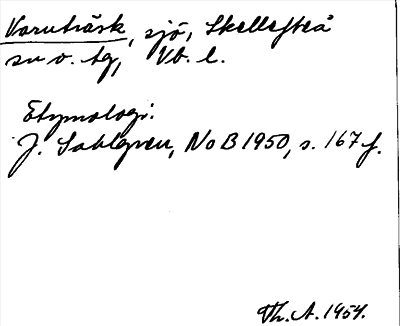 Varuträsk, sjö, Skellefteå
sn o. tg, Vb. l.
Etymologi:
J. Sahlgren, NoB 1950, s. 167 f.
Th. A. 1954.